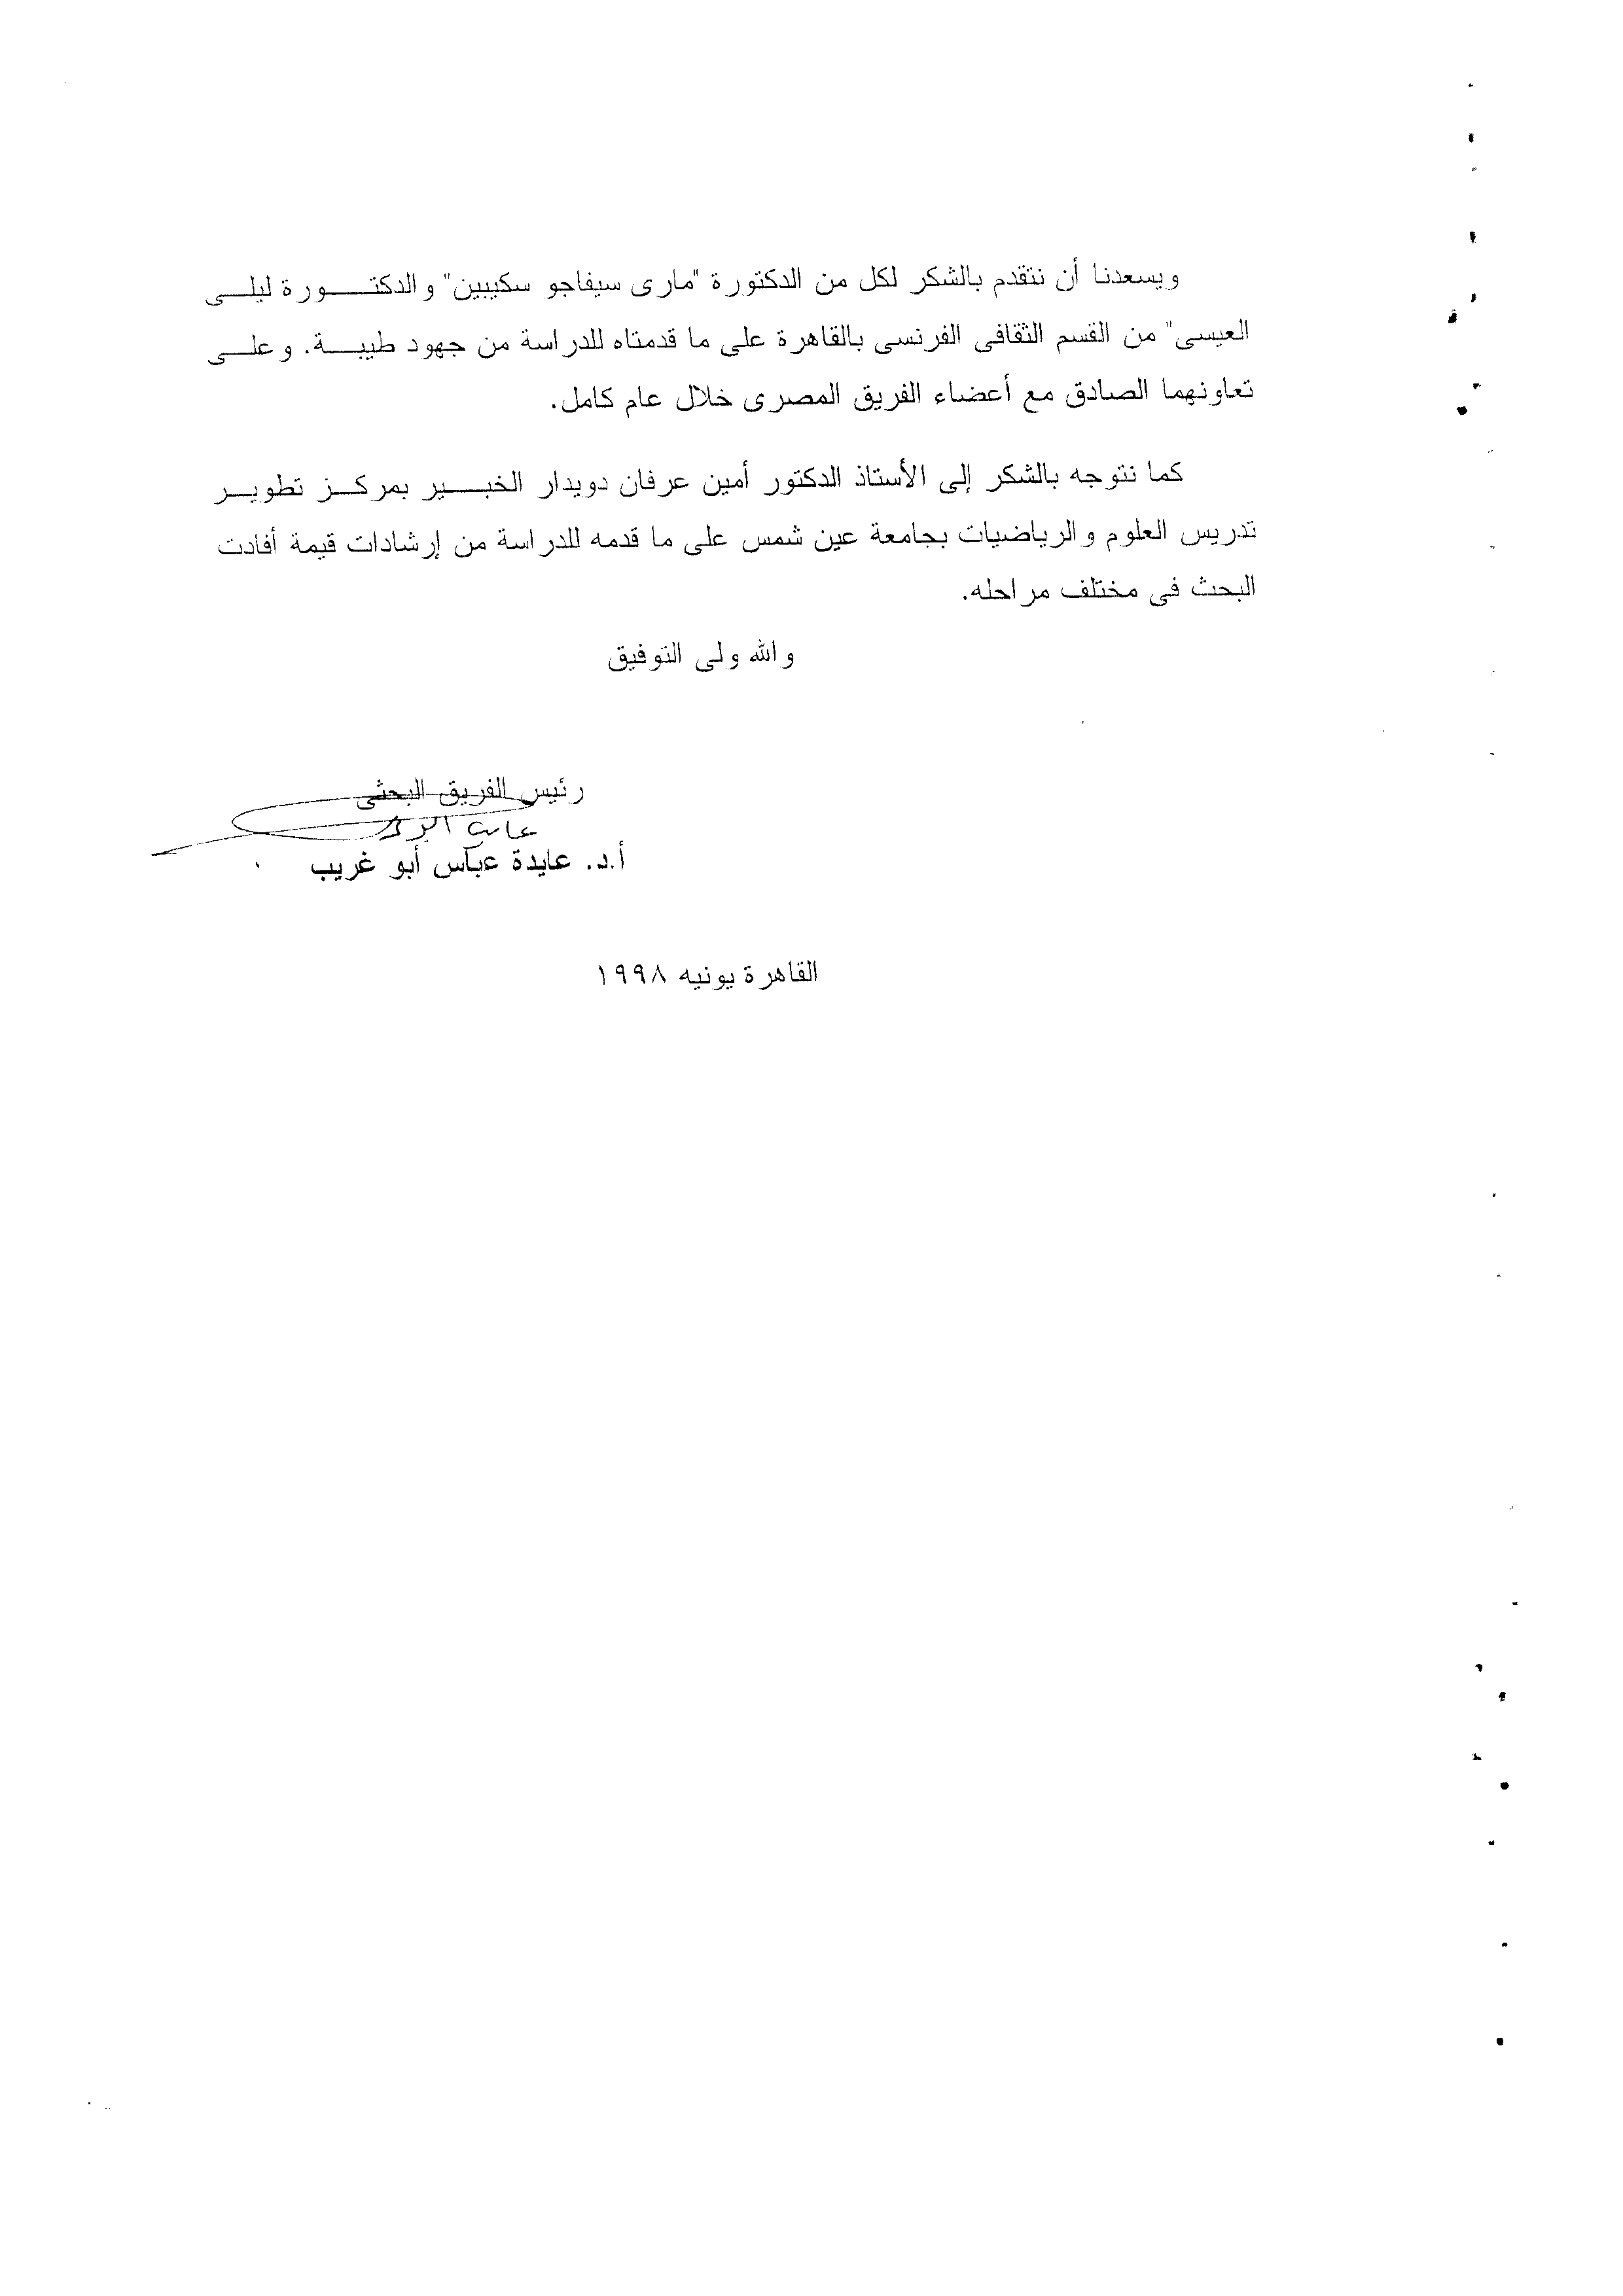 ويسعدنا أن نتقدم بالشكر لكل من الدكتورة "مارى سيفاجو سكيبين" والدكتورة ليلى
العيسى" من القسم الثقافى الفرنسى بالقاهرة على ما قدمتاه للدراسة من جهود طيبة. وعلى
تعاونهما الصادق مع أعضاء الفريق المصرى خلال عام كامل.
كما نتوجه بالشكر إلى الأستاذ الدكتور أمين عرفان دويدار الخبير بمركز تطوير
تدريس العلوم والرياضيات بجامعة عين شمس على ما قدمه للدراسة من إرشادات قيمة أفادت
البحث فى مختلف مراحله.
والله ولى التوفيق
رئيس الفريق البحثى
أ.د. عايدة عباس أبو غريب
القاهرة يونيه ١٩٩٨